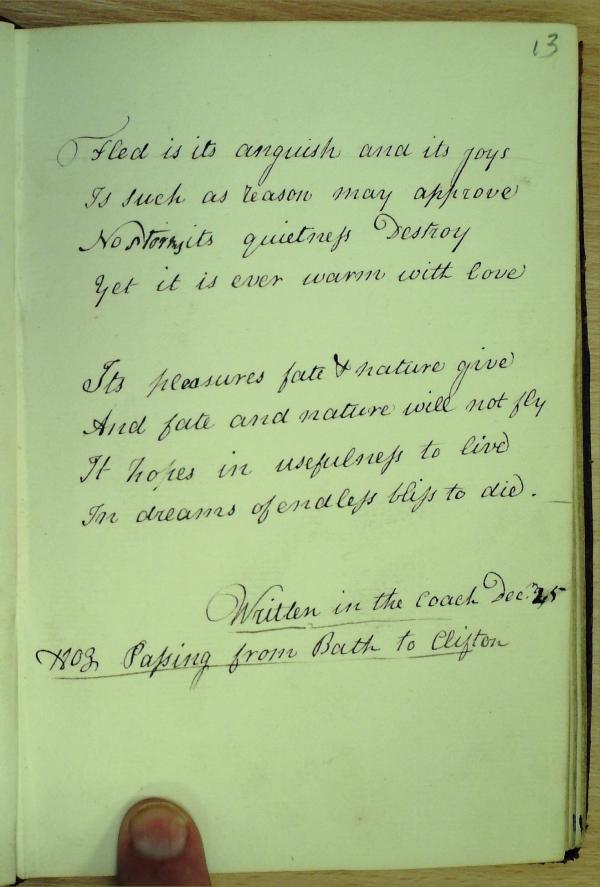 13
Fled is its anguish and its joys
Is such as reason may approve
No storms its quietness Destroy
Yet it is ever warm with love
Its pleasures fate & nature give
And fate and nature will not fly
It hopes in usefulness to live
In dreams of endless bliss to die.
Written in the coach Decr 25
1803 Passing from Bath to Clifton